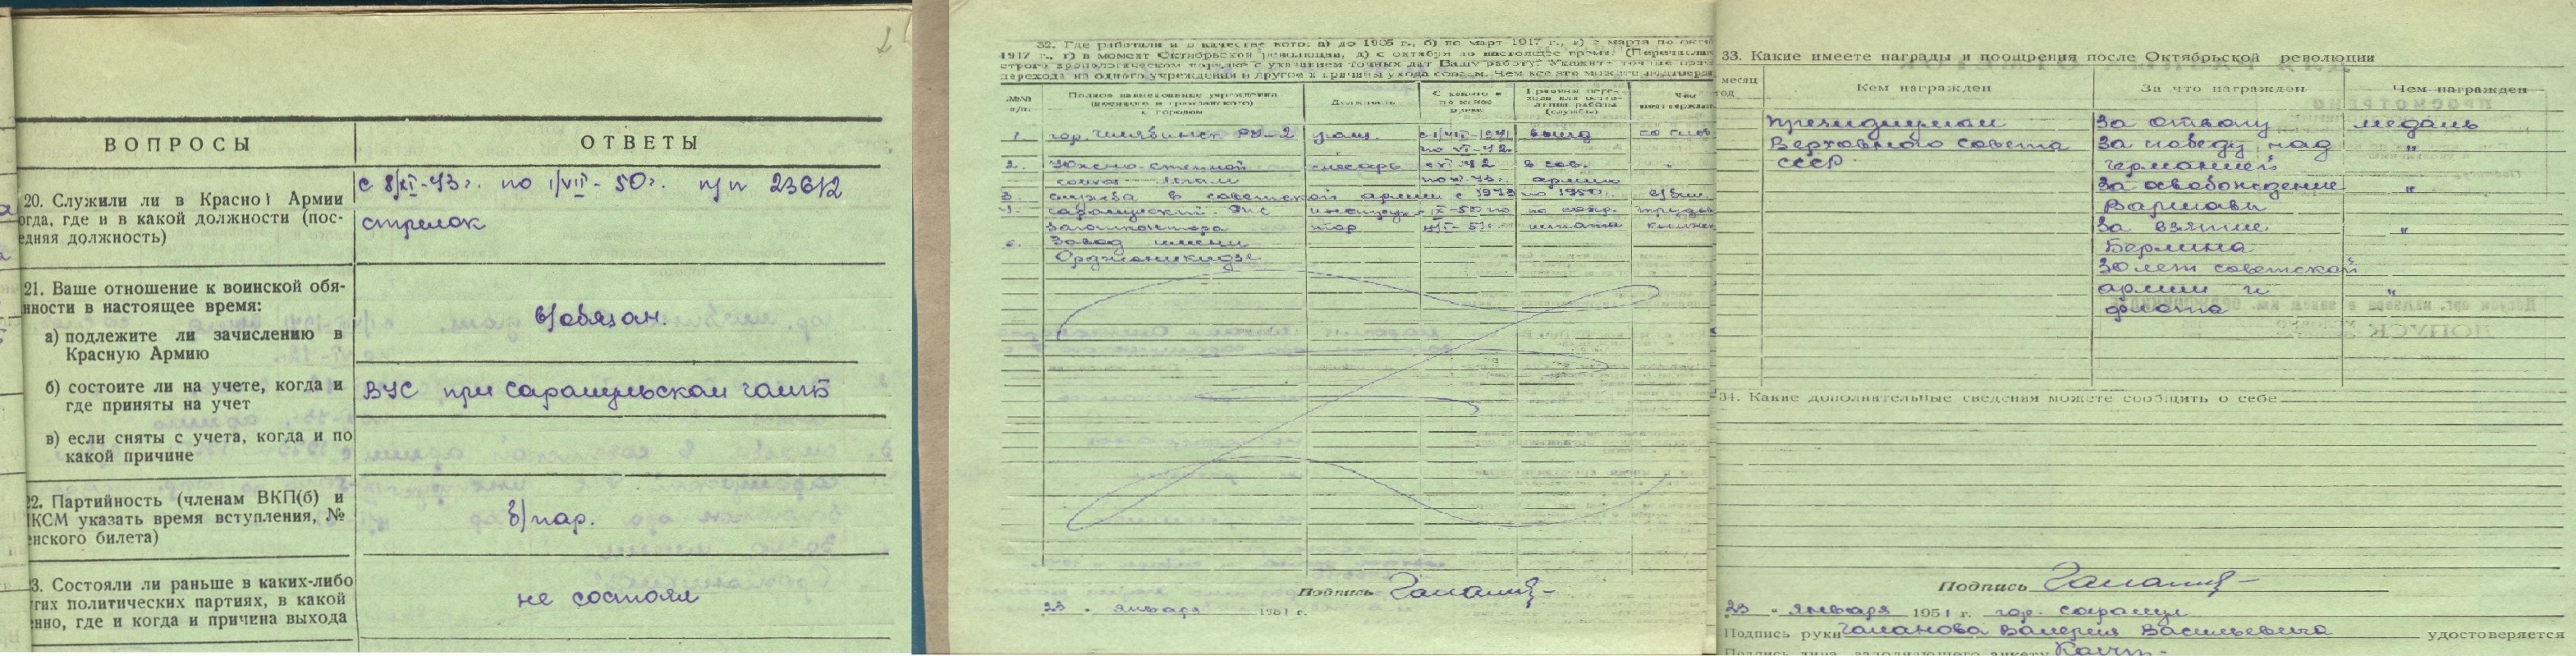 ВОПРОСЫ
ОТВЕТЫ
20. Служили ли в Красной Армии
огда, где и в какой должности (пос-
едняя должность)
с 8/XI-43г. по 1/VII-50г. п/п 23612
стрелок
21. Ваше отношение к воинской обя-
нности в настоящее время:
а) подлежите ли зачислению в
Красную Армию
в/обязан.
б) состоите ли на учете, когда и
где приняты на учет
ВУС при Сарапульском
в) если сняты с учета, когда и по
какой причине
22. Партийность (членам ВКП(б) и
КСМ указать время вступления, №
енского билета)
б/пар.
3. Состояли ли раньше в каких-либо
гих политических партиях, в какой
нно, где и когда и причина выхода
не состоял
32. Где работали и в качестве кого: а) до 1905 г., б) по март 1917 г., в) с марта по октя
1917 г., г) в момент Октябрьской революции, д) с октября по настоящее время. (Перечислит
строго хронологическом порядке с указанием точных дат Вашу работу. Укажите точные
перехода из одного учреждения в другое и причины ухода совсем. Чем все это можете подтверд
№№ п/п.
Полное наименование учреждения
(военного и гражданского)
с городом
Должность
С какого и
по какое
время
Причины пере-
хода или остав-
ления работы
(службы)
Чем
подтверждает
1. гор. Челябинск РУ-2 учащ. с 1/VII-1941 выезд со слов
по VI-42
2. Южно-степной слесарь с VI 42 в сов. "
совхоз по XI 43г. армию
3. служба в советской армии с 1943 по 1950г. в/бил
4. Сарапульский инструк IX-50 по по сокр. трудов
Заготконтора тор I-51г. штата книжк
5. Завод имени
Орджоникидзе
Подпись Галанов
23 " января 1951 г.
33. Какие имеете награды и поощрения после Октябрьской революции
месяц
год
Кем награжден
За что награжден
Чем награжден
Президиумом За отвагу медаль
Верховного Совета За победу над "
СССР Германией
За освобождение "
Варшавы
За взятие "
Берлина
30 лет советской
армии и "
флота
34. Какие дополнительные сведения можете сообщить о себе
Подпись Галанов
23 " января 1951 г. гор. Сарапул
Подпись руки Галанова Валерия Васильевича удостоверяется
Подпись лица, заполняющего анкету